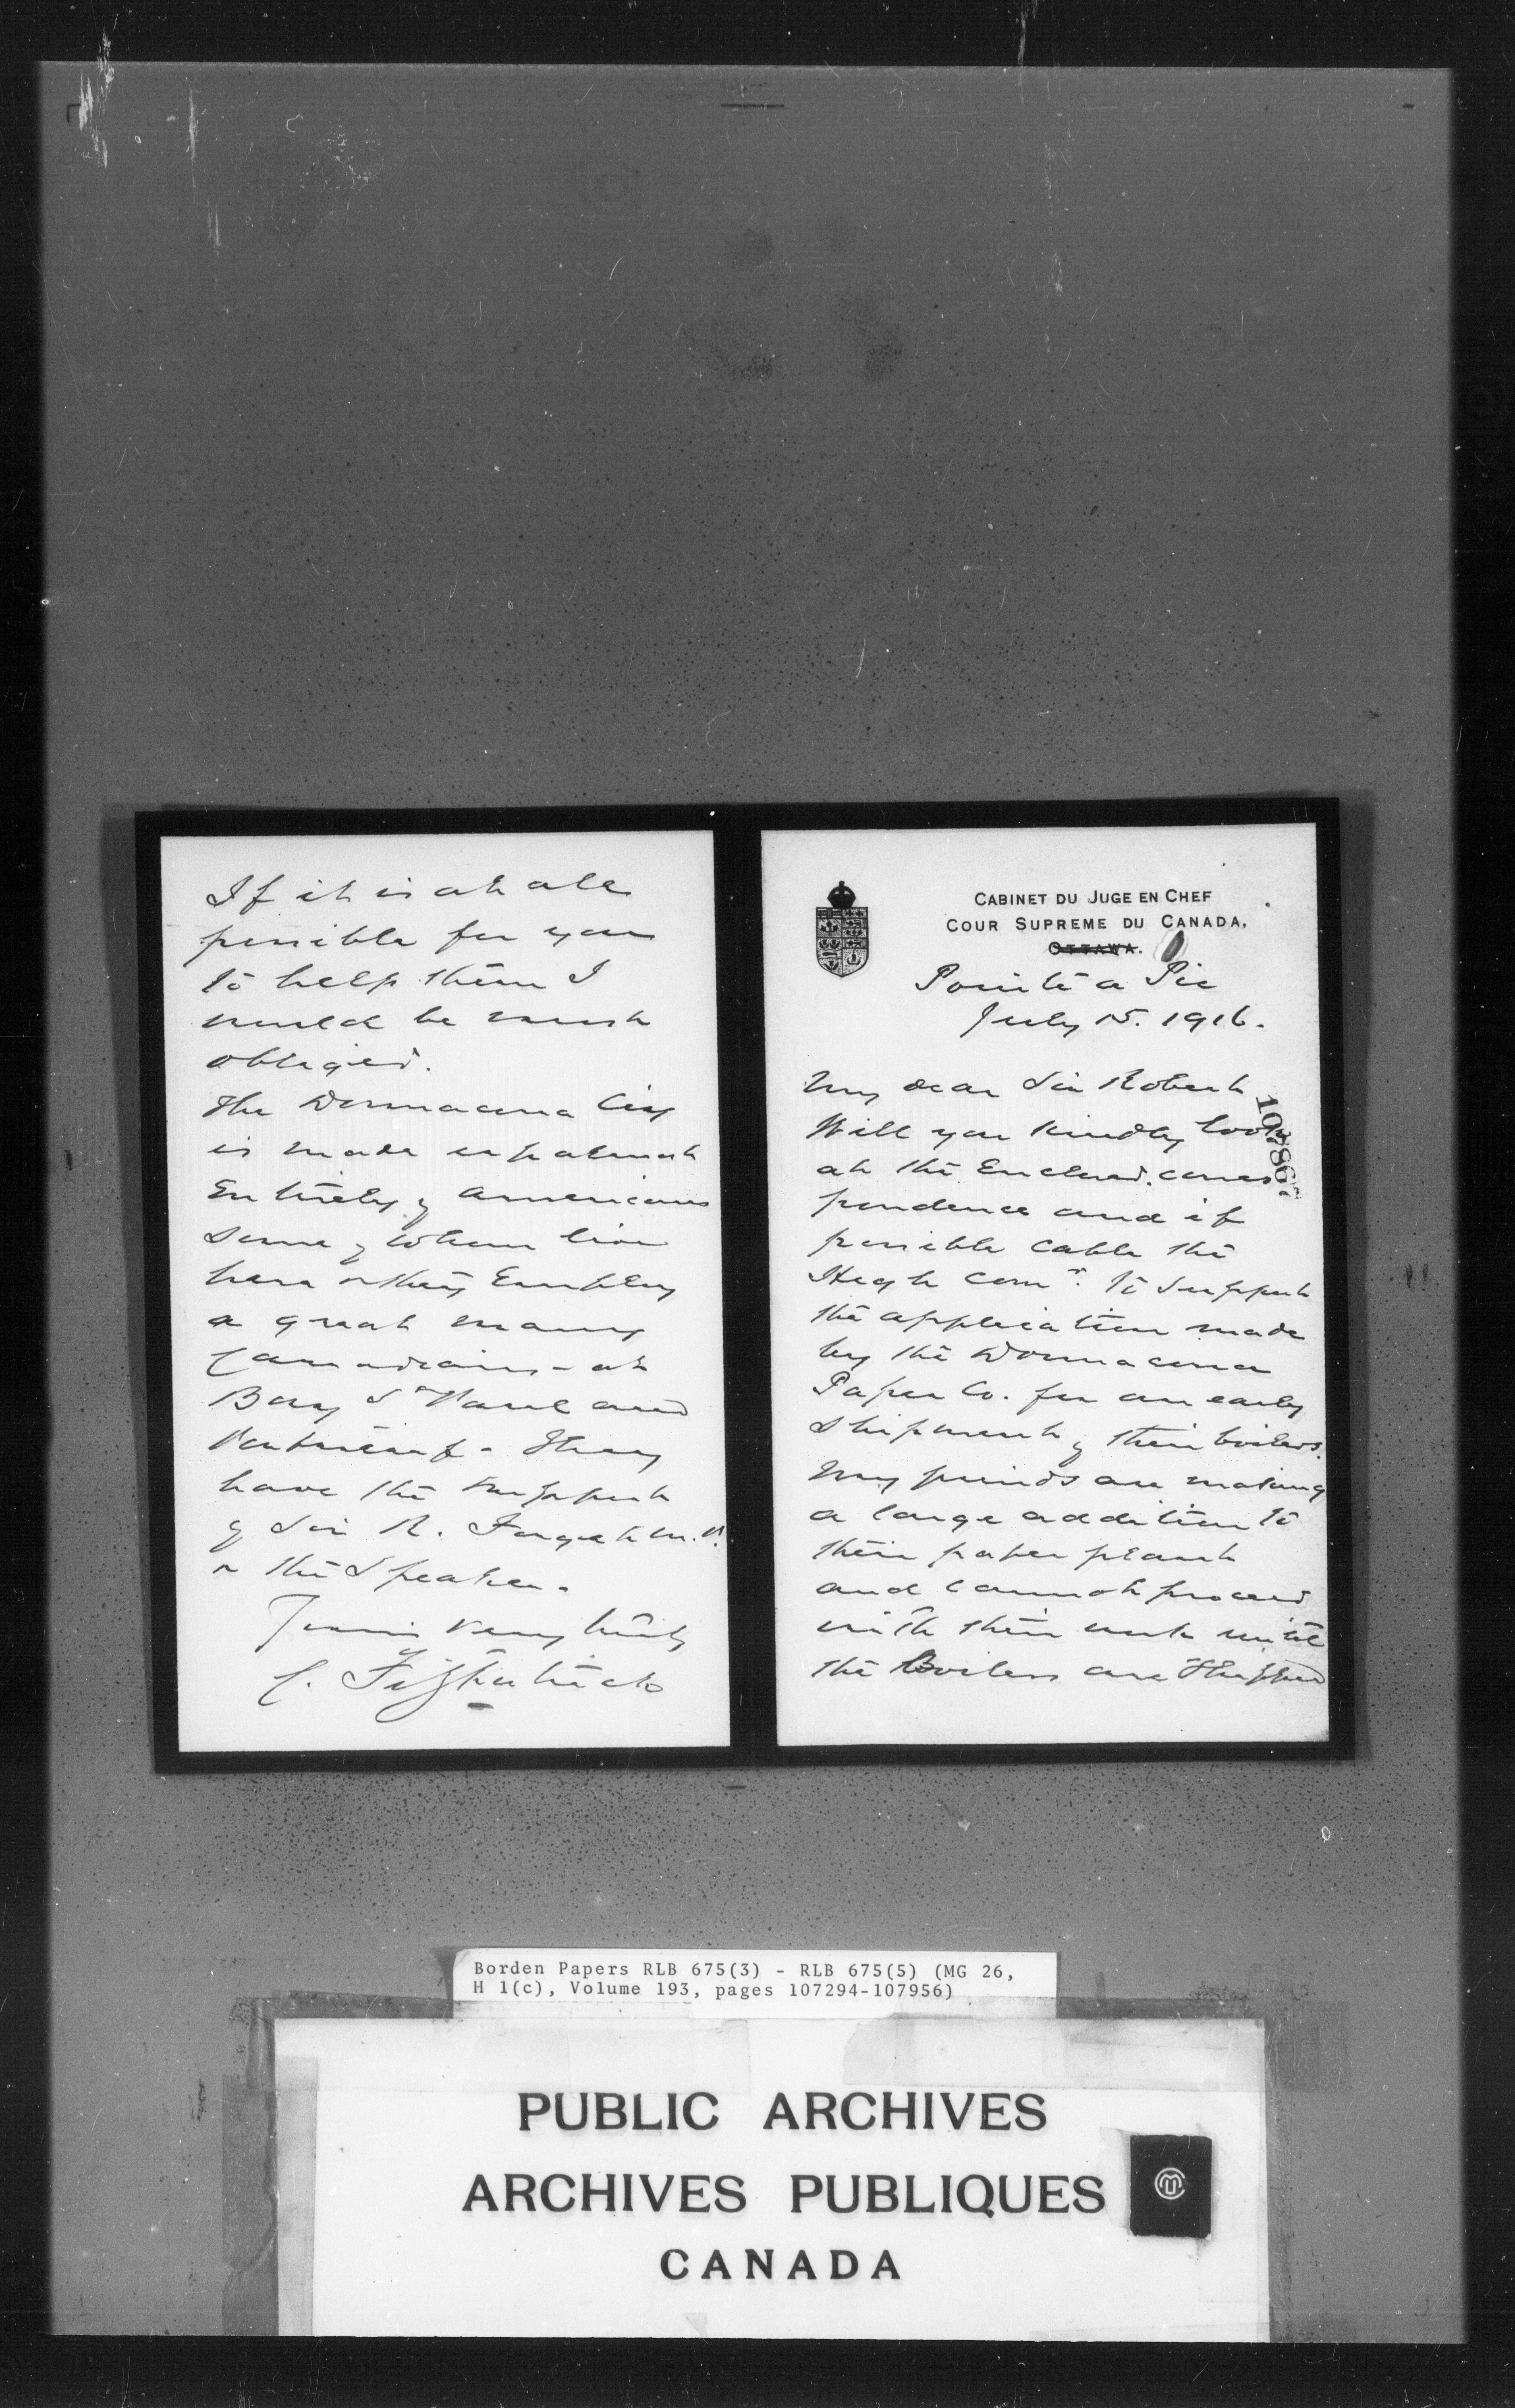 CABINET DU JUGE EN CHEF
COUR SUPREME DU CANADA,
OTTAWA.
Pointe a Pic
July 15. 1916.
My dear Sir Robert
Will you kindly look
at the Enclosed corres
pondence and if
possible cable the
High Comr. to support
the application made
by the Donnacona
Paper Co. for an early
shipment of their boilers.
My friends are making
a large addition to
their paper plant
and cannot proceed
with their work until
the Boilers are shipped
If it is at all
possible for you
to help them I
would be much
obliged.
The Donnacona Coy
is made up almost
Entirely of americans
some of whom live
here & they Employ
a great many
Canadians - at
Bay St Paul and
Portneuf - They
have the support
of Sir R. Forget M.P.
& the Speaker -
Yours very truly
C. Fitzpatrick
Borden Papers RLB 675(3) - RLB 675(5) (MG 26,
H 1(c), Volume 193, pages 107294-107956)
PUBLIC ARCHIVES
ARCHIVES PUBLIQUES
CANADA